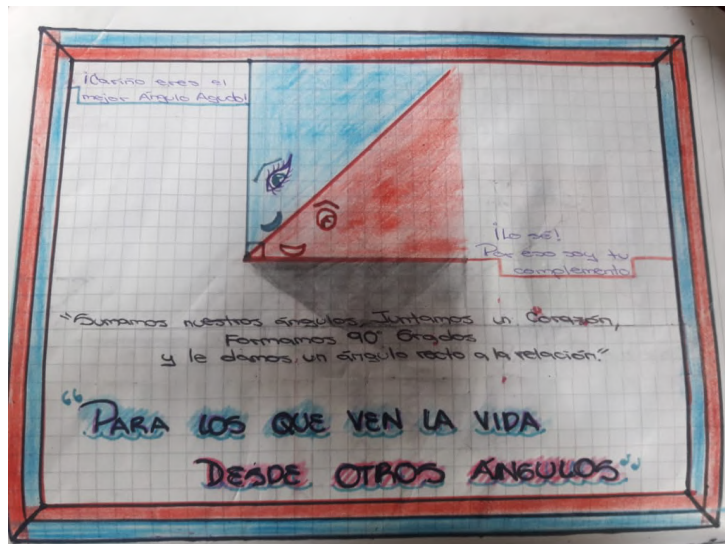 ¡Cariño eres el
mejor Ángulo Agudo!
¡Lo sé!
Por eso soy tu
complemento
"Sumamos nuestros ángulos, Juntamos un Corazón,
Formamos 90° Grados
y le damos un ángulo recto a la relación."
"PARA LOS QUE VEN LA VIDA
DESDE OTROS ÁNGULOS"